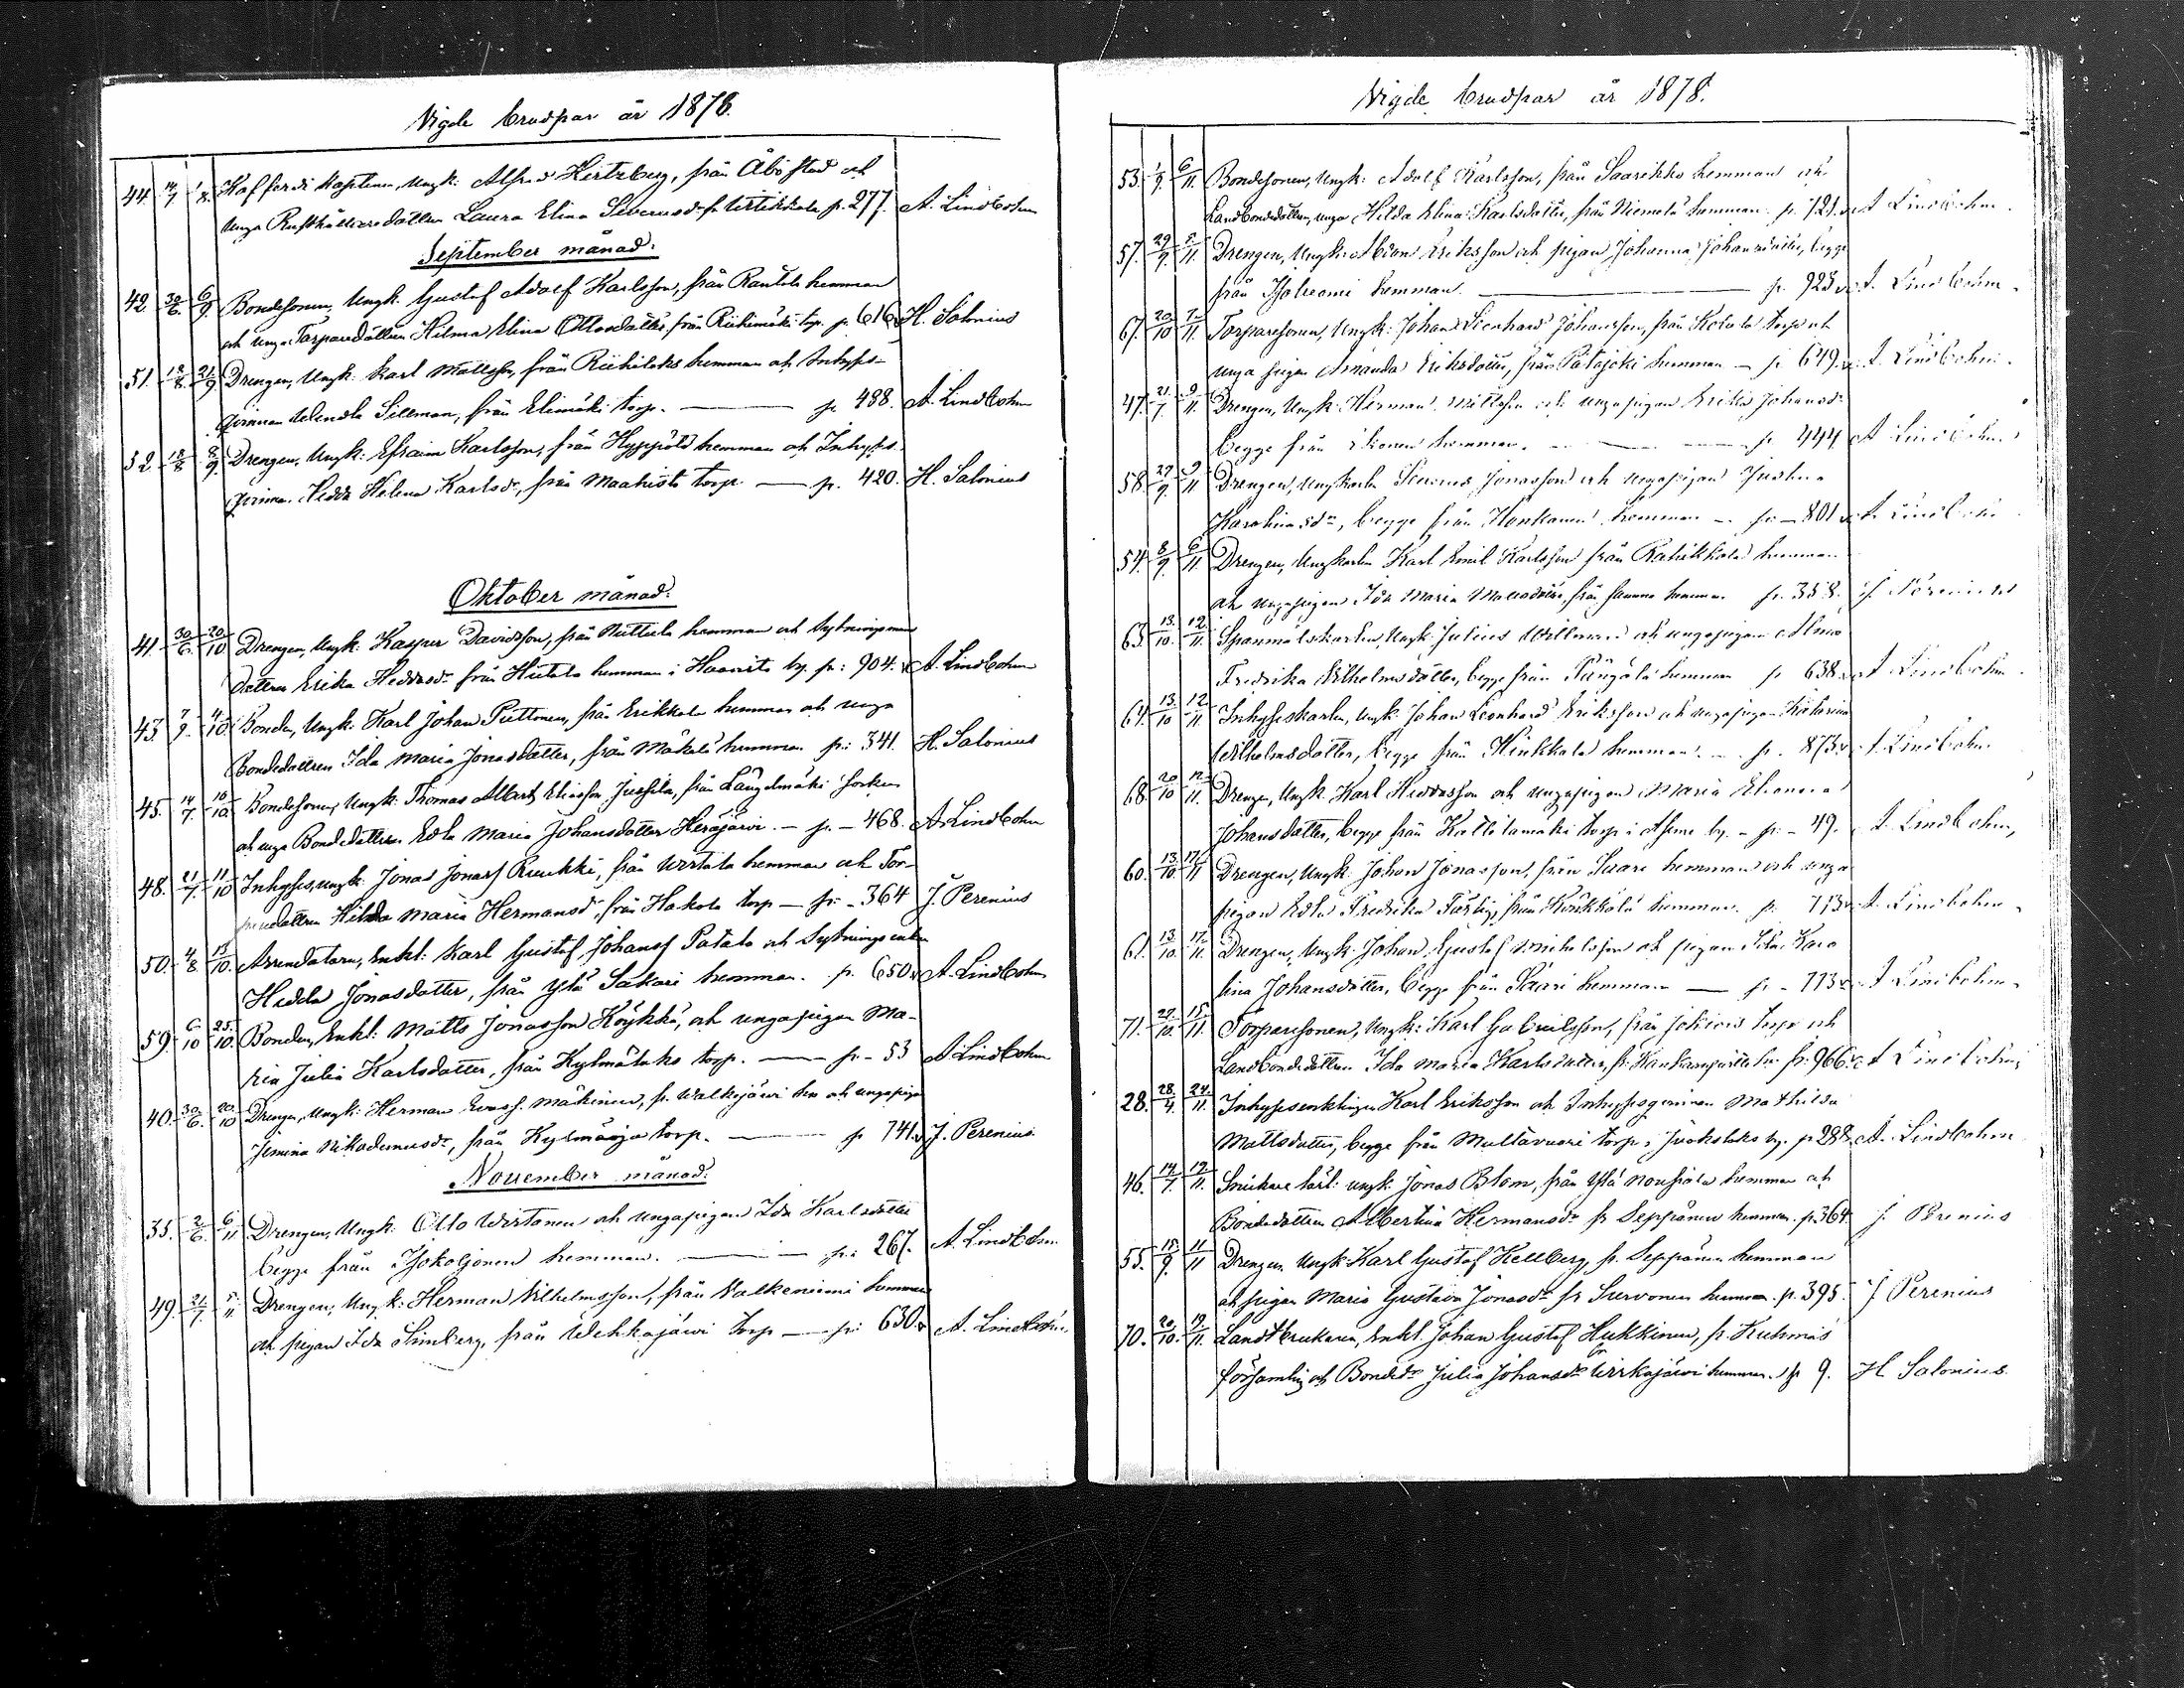 Vigde brudpar år 1878.
44. 14/7 1/8. Kofferdi Kaptenen, Ungk: Alfred Hertzberg, från Åbo stad och
unga Rusthållaredottren Laura Elina Severusdr fr p. 277. A. Lindbohm
September månad.
42 30/6. 6/9. Bondesonen, Ungk. Gustaf Adolf Karlsson, från Rantala hemman
och unga Torparedottren Hilma Elina Ottosdotter, från Riihimäki torp. p. 616 H. Salonius
51. 18/8 21/9 Drengen, Ungk: Karl Mattsson, från Riihilaks hemman och Inhyses-
qvinnan Wendla Silleman, från Elimäki torp. — p. 488. A. Lindbohm
52. 18/8 8/9. Drengen, Ungk: Efraim Karlsson, från hemman och Inhyses
qvinnan Hedda Helena Karlsdr, från Maahisto torp. — p. 420. H. Salonius
Oktober månad.
41. 30/6. 20/10 Drengen, Ungk: Kasper Davidsson, från hemman och Sytningsman
dottren Erika Heddasdr från Hietala hemman i by. p: 904. A. Lindbohm
43. 7/9. 4/10 Bonden, Ungk: Karl Johan från Erikkala hemman och unga
Bondedottren Ida Maria Jonasdotter, från Mäkelä hemman p: 341. H. Salonius
45. 14/7. 16/10. Bondesonen, Ungk: Thomas Albert Eliasson Jussila, från Längelmäki socken
och unga Bondedottren Edla Maria Johansdotter Heräjärvi. — p. — 468. A. Lindbohm
48. 21/7. 11/10 Inhyses, ungk: Jonas Jonass Ruukki, från hemman och Tor-
paredottren Hilda Maria Hermansdr, från Hakola torp — p: — 364 J. Perenius
50. 4/8 13/10. Arrendatorn, Enkl: Karl Gustaf Johanss Patala och Sytnings enkan
Hedda Jonasdotter, från Ylä Sakari hemman. p. 650 A. Lindbohm
59. 6/10 25/10. Bonden, Enkl: Matts Jonasson Köykkä, och ungapigan Ma-
ria Julia Karlsdotter, från Kylmälaks torp. — p: — 53 A. Lindbohm
40. 30/6. 20/10 Drengen, Ungk: Herman Mäkinen, fr. Walkijärvi hem och ungapigan
Jemina Nikademusdr, från Kylmäoja torp. — p 741. J. Perenius.
November månad.
35. 2/6. 6/11 Drengen, Ungk: Otto Wirtanen och ungapigan Ida Karlsdotter
begge från Isokoljonen hemman. — p: 267. A. Lindbohm.
49. 21/7. 5/11 Drengen, Ungk: Herman Vilhelmsson, från Valkeniemi hemman
och pigan Ida Stenberg, från Wehkajärvi torp — p: 630. A. Lindbohm.
Vigde brudpar år 1878.
53. 1/9. 6/11. Bondesonen, Ungk: Adolf Karlsson, från Saarikko hemman och
Landbondedottren, unga Hilda Elina Karlsdotter, från Niemelä hemman p. 721. A Lindbohm.
57. 29/9. 5/11. Drengen, Ungk: Abram Eriksson och pigan Johanna Johansdotter, begge
från hemman. — p. 923 A. Lindbohm.
67. 20/10 7/11. Torparesonen, Ungk: Johan Leonhard Johansson, från Kotala torp och
unga pigan Amanda Eriksdotter, från Patajoki hemman — p 679. A. Lindbohm.
47. 21/7. 9/11. Drengen, Ungk: Herman Mattsson och ungapigan Erika Johansdr
begge från Ikonen hemman. — p. 444 A Lindbohm
58. 29/9. 9/11 Drengen, Ungkarlen Severus Jonasson och ungapigan Justina
Karolinasdr, begge från Honkanen hemman — p: — 801 A. Lindbohm
54. 8/9. 6/11 Drengen, Ungkarlen Karl Emil Karlsson från Rahikkala hemman
och ungapigan Ida Maria Mattsdotter, från samma hemman p. 358. J. Perenius
63. 13/10. 12/11. Spanmålskarlen, Ungk: Julius Willman och ungapigan Alma
Fredrika Vilhelmsdotter, begge från hemman p 638. A Lindbohm.
64. 13/10 12/11. Inhyseskarlen, Ungk: Johan Leonhard Eriksson och ungapigan Katarina
Wilhelmsdotter, begge från Hinkkala hemman. — p. 873. A. Lindbohm
68. 20/10 12/11. Drengen, Ungk: Karl Heddasson och ungapigan Maria Eleonora
Johansdotter, begge från Kaltilamäki torp i by. — p: — 49. A. Lindbohm,
60. 13/10. 17/11 Drengen, Ungk: Johan Jonasson, från Saari hemman och unga
pigan Edla Fredrika från hemman. p. 773 A. Lindbohm.
61. 13/10. 17/11. Drengen, Ungk: Johan Gustaf Michelsson och pigan Ida Karo
lina Johansdotter, begge från Saari hemman — p — 773 A Lindbohm.
71. 27/10. 15/11. Torparesonen, Ungk: Karl Gabrielsson, från torp och
Landbondedottren Ida Maria Karlsdotter, fr. p. 966 A Lindbohm,
28. 28/4. 24/11. Inhysesenklingen Karl Eriksson och Inhysesqvinnan Mathilda
Mattsdotter, begge från Multavuori torp, by. p 288. A. Lindbohm
46. 14/7. 19/11. Snickare lärl: ungk: Jonas Blom, från Ylä hemman och
Bondedottren Albertina Hermansdr fr Seppänen hemman. p. 364. J. Perenius
55. 15/9. 11/11 Drengen Ungk: Karl Gustaf Hellberg, fr. Seppänen hemman
och pigan Maria Gustava Jonasdr fr Survonen hemman. p. 395. J Perenius
70. 20/10. 19/11. Landtbrukaren, Enkl. Johan Gustaf Hukkinen, fr. Kuhmois
församling och Bondedr Julia Johansdr fr Wirkajärvi hemman. p 9. H Salonius.